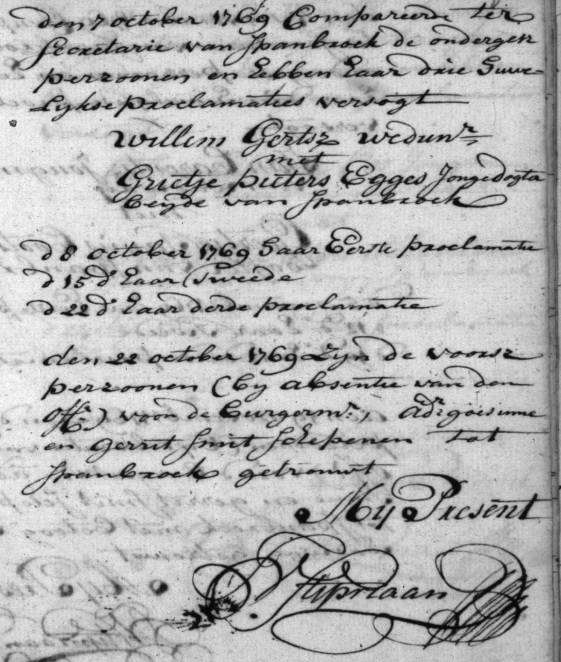 den 7 october 1769 Compareerde ter
Secretarie van Spanbroek de ondergesz
perzoonen en hebben haar drie huwe-
lijkse proclamaties versogt
Willem Gertsz wedunr
met
Grietje pieters Egges Jongedogta
beyde van Spanbroek
d 8 october 1769 haar Eerste proclamatie
d 15 do haar Tweede
d 22 do haar derde proclamatie
den 22 october 1769 Zijn de voorsz
perzoonen (by absentie van den
offr) voor de burgermr,
en gerrit Smit Schepenen tot
Spanbroek getrouwt
Mij Present
Stiprlaan